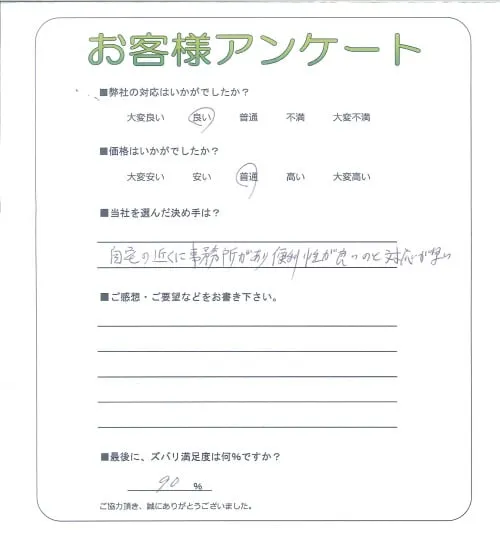 お客様アンケート
■弊社の対応はいかがでしたか？
大変良い 良い 普通 不満 大変不満
■価格はいかがでしたか？
大変安い 安い 普通 高い 大変高い
■当社を選んだ決め手は？
自宅の近くに事務所があり便利性が良いのと対応が早い
■ご感想・ご要望などをお書き下さい。
■最後に、ズバリ満足度は何％ですか？
90 ％
ご協力頂き、誠にありがとうございました。